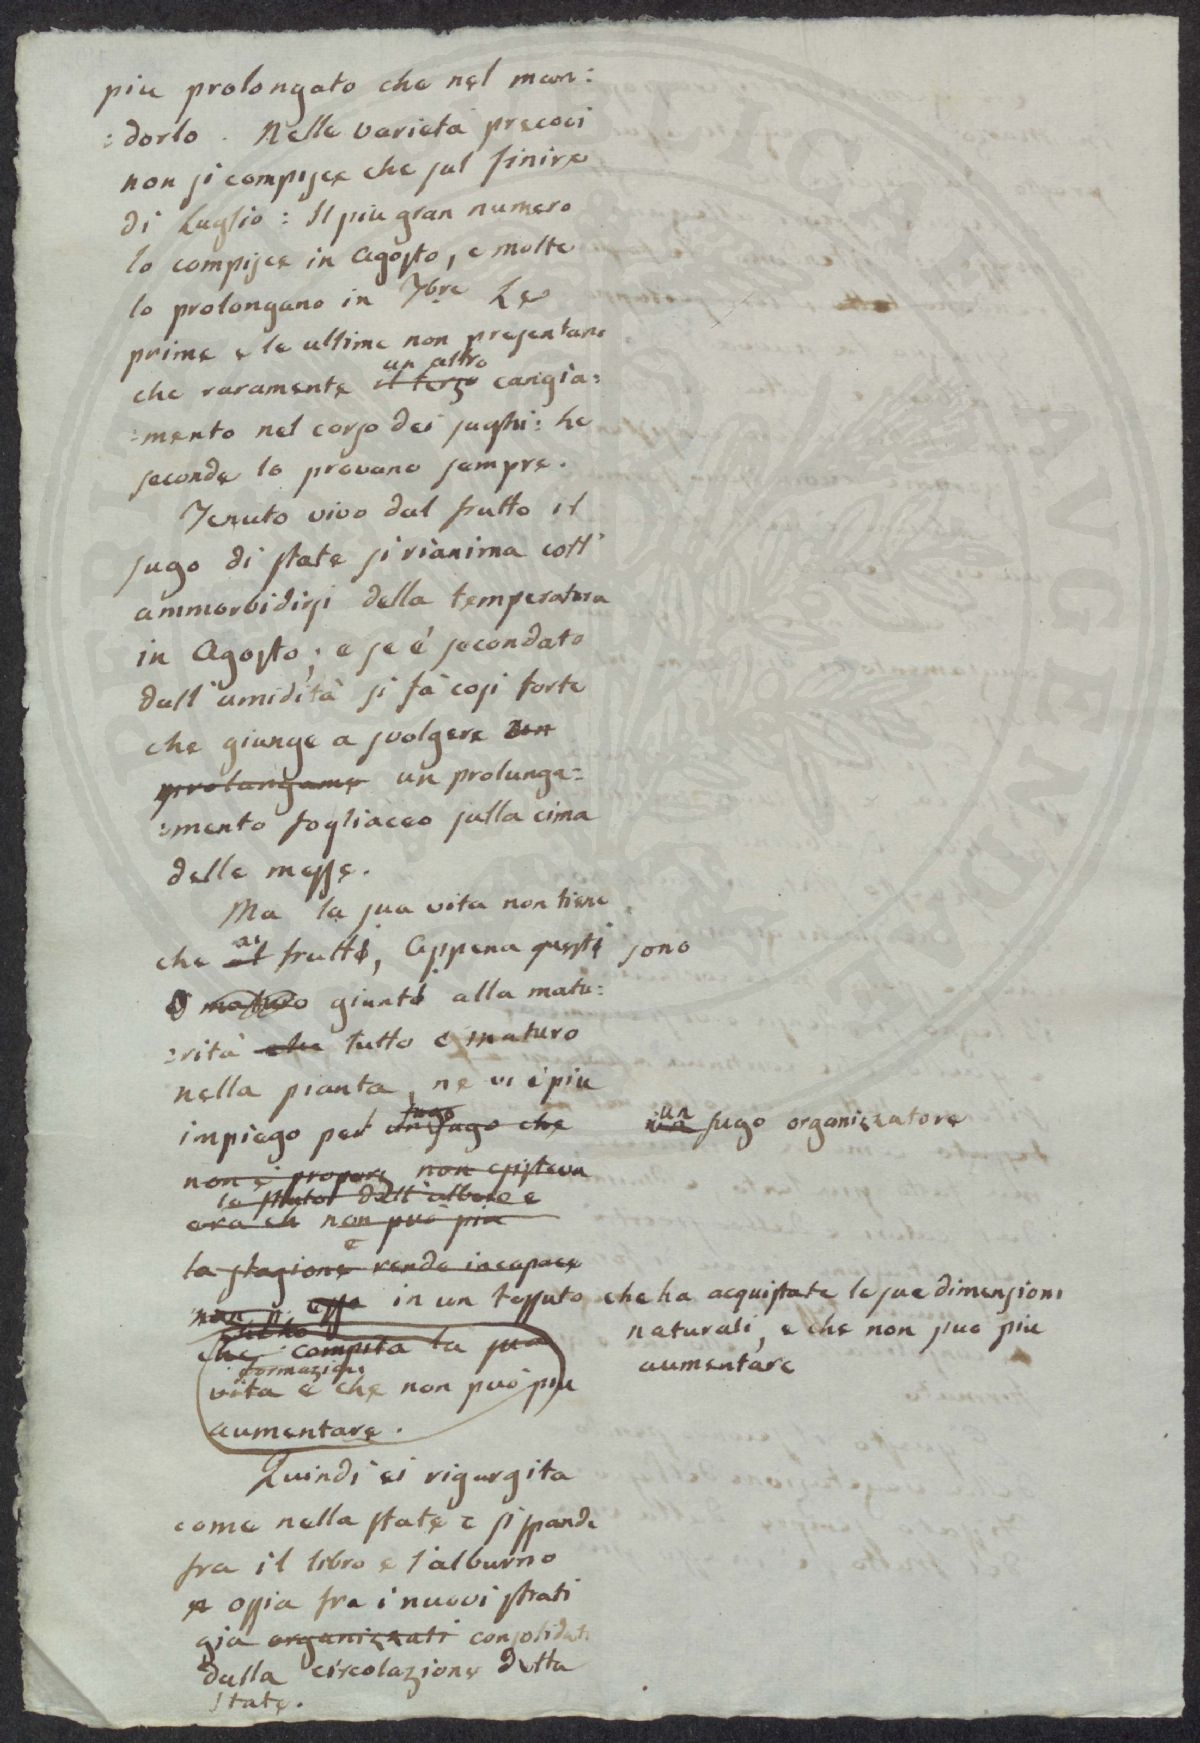 piu prolongato che nel man:
:dorlo. Nelle varietà precoci
non si compisce che sul finire
di Luglio: Il piu gran numero
lo compisce in Agosto, e molte
lo prolongano in 7bre Le
prime e le ultime non presentano
un altro
che raramente il terzo cangia:
:mento nel corso dei sughi: Le
seconde lo provano sempre.
Tenuto vivo dal frutto il
sugo di state si rianima coll'
ammorbidirsi della temperatura
in Agosto; e se è secondato
dall'umidità si fà cosi forte
che giunge a svolgere
prolungame un prolunga=
:mento fogliaceo sulla cima
delle messe.
Ma la sua vita non tiene
che ai frutti, Appena questi sono
maturo giunti alla matu:
:rità che tutto è maturo
nella pianta, ne vi è piu
sugo
impiego per un sugo che un sugo organizzatore
non si propone non esisteva
lo stato dell'albero e
ora non può piu
la stagione rende incapace
non esso in un tessuto che ha acquistate le sue dimensioni
naturali, e che non può piu
aumentare
che compita la sua
formazione
vita e che non può piu
aumentare.
Quindi ei rigurgita
come nella state e si spande
fra il libro e l'alburno
ossia fra i nuovi strati
gia organizzati consolidati
dalla circolazione della
state.
PVBLICA AVGENDO